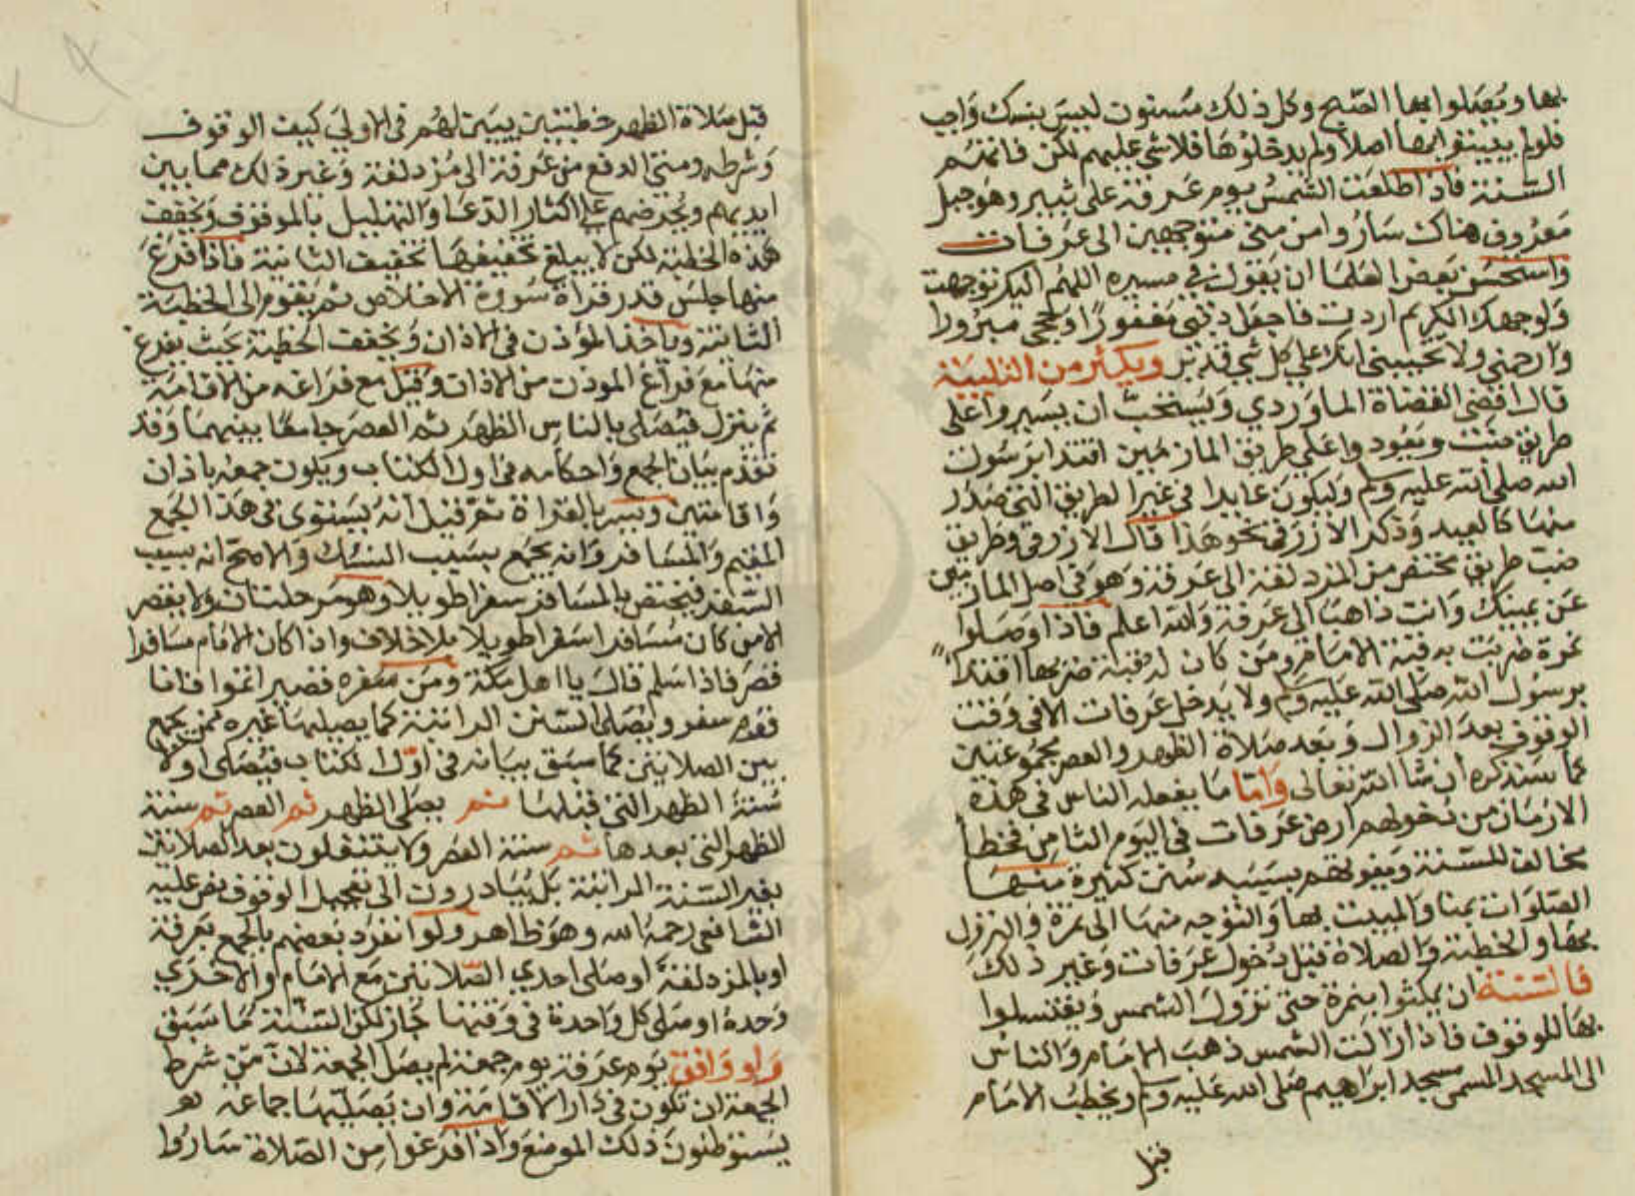 بها ويصلوا بها الصبح وكل ذلك مسنون ليس بنسك واجب
فلو لم يبيتوا بها اصلا ولم يدخلوها فلا شي عليهم لكن فاتتهم
السنة فاذا طلعت الشمس يوم عرفة على ثبير وهو جبل
معروف هناك ساروا من منى متوجهين الى عرفات
واستحسن بعض العلما ان يقول في مسيره اللهم اليك توجهت
ولوجهك الكريم اردت فاجعل ذنبي مغفورا وحجي مبرورا
وارحمني ولا تخيبني انك على كل شي قدير ويكثر من التلبية
قال اقضى القضاة الماوردي ويستحب ان يسيروا على
طريق ضب ويعودوا على طريق المازمين اقتدا برسول
الله صلى الله عليه وسلم وليكون عايدا في غير الطريق التي صدر
منها كالعيد وذكر الازرقي نحو هذا قال الازرقي وطريق
ضب طريق مختصر من المزدلفة الى عرفة وهو في اصل المازمين
عن يمينك وانت ذاهب الى عرفة والله اعلم فاذا وصلوا
نمرة ضربت به قبة الامام ومن كان له قبة ضربها اقتدا
برسول الله صلى الله عليه وسلم ولا يدخل عرفات الا في وقت
الوقوف بعد الزوال وبعد صلاة الظهر والعصر مجموعتين
كما سنذكره ان شا الله تعالى واما ما يفعله الناس في هذه
الازمان من دخولهم ارض عرفات في اليوم الثامن فخطا
مخالف للسنة ويفوتهم بسببه سنن كثيرة منها
الصلوات بمنا والمبيت بها والتوجه منها الى نمرة والنزول
بها والخطبة والصلاة قبل دخول عرفات وغير ذلك
فالسنة ان يمكثوا بنمرة حتى تزول الشمس ويغتسلوا
بها للوقوف فاذا زالت الشمس ذهب الامام والناس
الى المسجد المسمى مسجد ابراهيم صلى الله عليه وسلم ويخطب الامام
قبل
قبل صلاة الظهر خطبتين يبين لهم في الاولي كيف الوقوف
وشرطه ومتى الدفع من عرفة الى مزدلفة وغير ذلك مما بين
ايديهم ويحرضهم على اكثار الدعا والتهليل بالموقف ويخفف
هذه الخطبة لكن لا يبلغ تخفيفها تخفيف الثانية فاذا فرغ
منها جلس قدر قراة سورة الاخلاص ثم يقوم الى الخطبة
الثانية وياخذ المؤذن في الاذان ويخفف الخطبة بحيث يفرغ
منها مع فراغ الموذن من الاذان وقيل مع فراغه من الاقامة
ثم ينزل فيصلى بالناس الظهر ثم العصر جامعا بينهما وقد
تقدم بيان الجمع واحكامه في اول الكتاب ويكون جمعه باذان
واقامتين ويسر بالقراة ثم قيل انه يستوى في هذا الجمع
المقيم والمسافر وانه يجمع بسبب النسك والاصح انه بسبب
السفر فيختص بالمسافر سفرا طويلا وهو مرحلتان ولا يقصر
الا من كان مسافرا سفرا طويلا بلا خلاف واذا كان الامام مسافرا
قصر فاذا سلم قال يا اهل مكة ومن سفره قصير اتموا فانا
قوم سفر ويصلى السنن الراتبة كما يصليها غيره ممن يجمع
بين الصلاتين كما سبق بيانه في اول الكتاب فيصلى اولا
سنة الظهر التي قبلها ثم يصلى الظهر ثم العصر ثم سنة
الظهر التي بعدها ثم سنة العصر ولا يتنفلون بعد الصلاتين
بغير السنة الراتبة بل يبادرون الى تعجيل الوقوف نص عليه
الشافعي رحمه الله وهو ظاهر ولو انفرد بعضهم بالجمع بعرفة
او بالمزدلفة او صلى احدي الصلاتين مع الامام والاخري
وحده او صلى كل واحدة في وقتها جاز لكن السنة ما سبق
ولو وافق يوم عرفة يوم جمعة لم يصل الجمعة لان من شرط
الجمعة ان تكون في دار الاقامة وان يصليها جماعة
يستوطنون ذلك الموضع واذا فرغوا من الصلاة ساروا